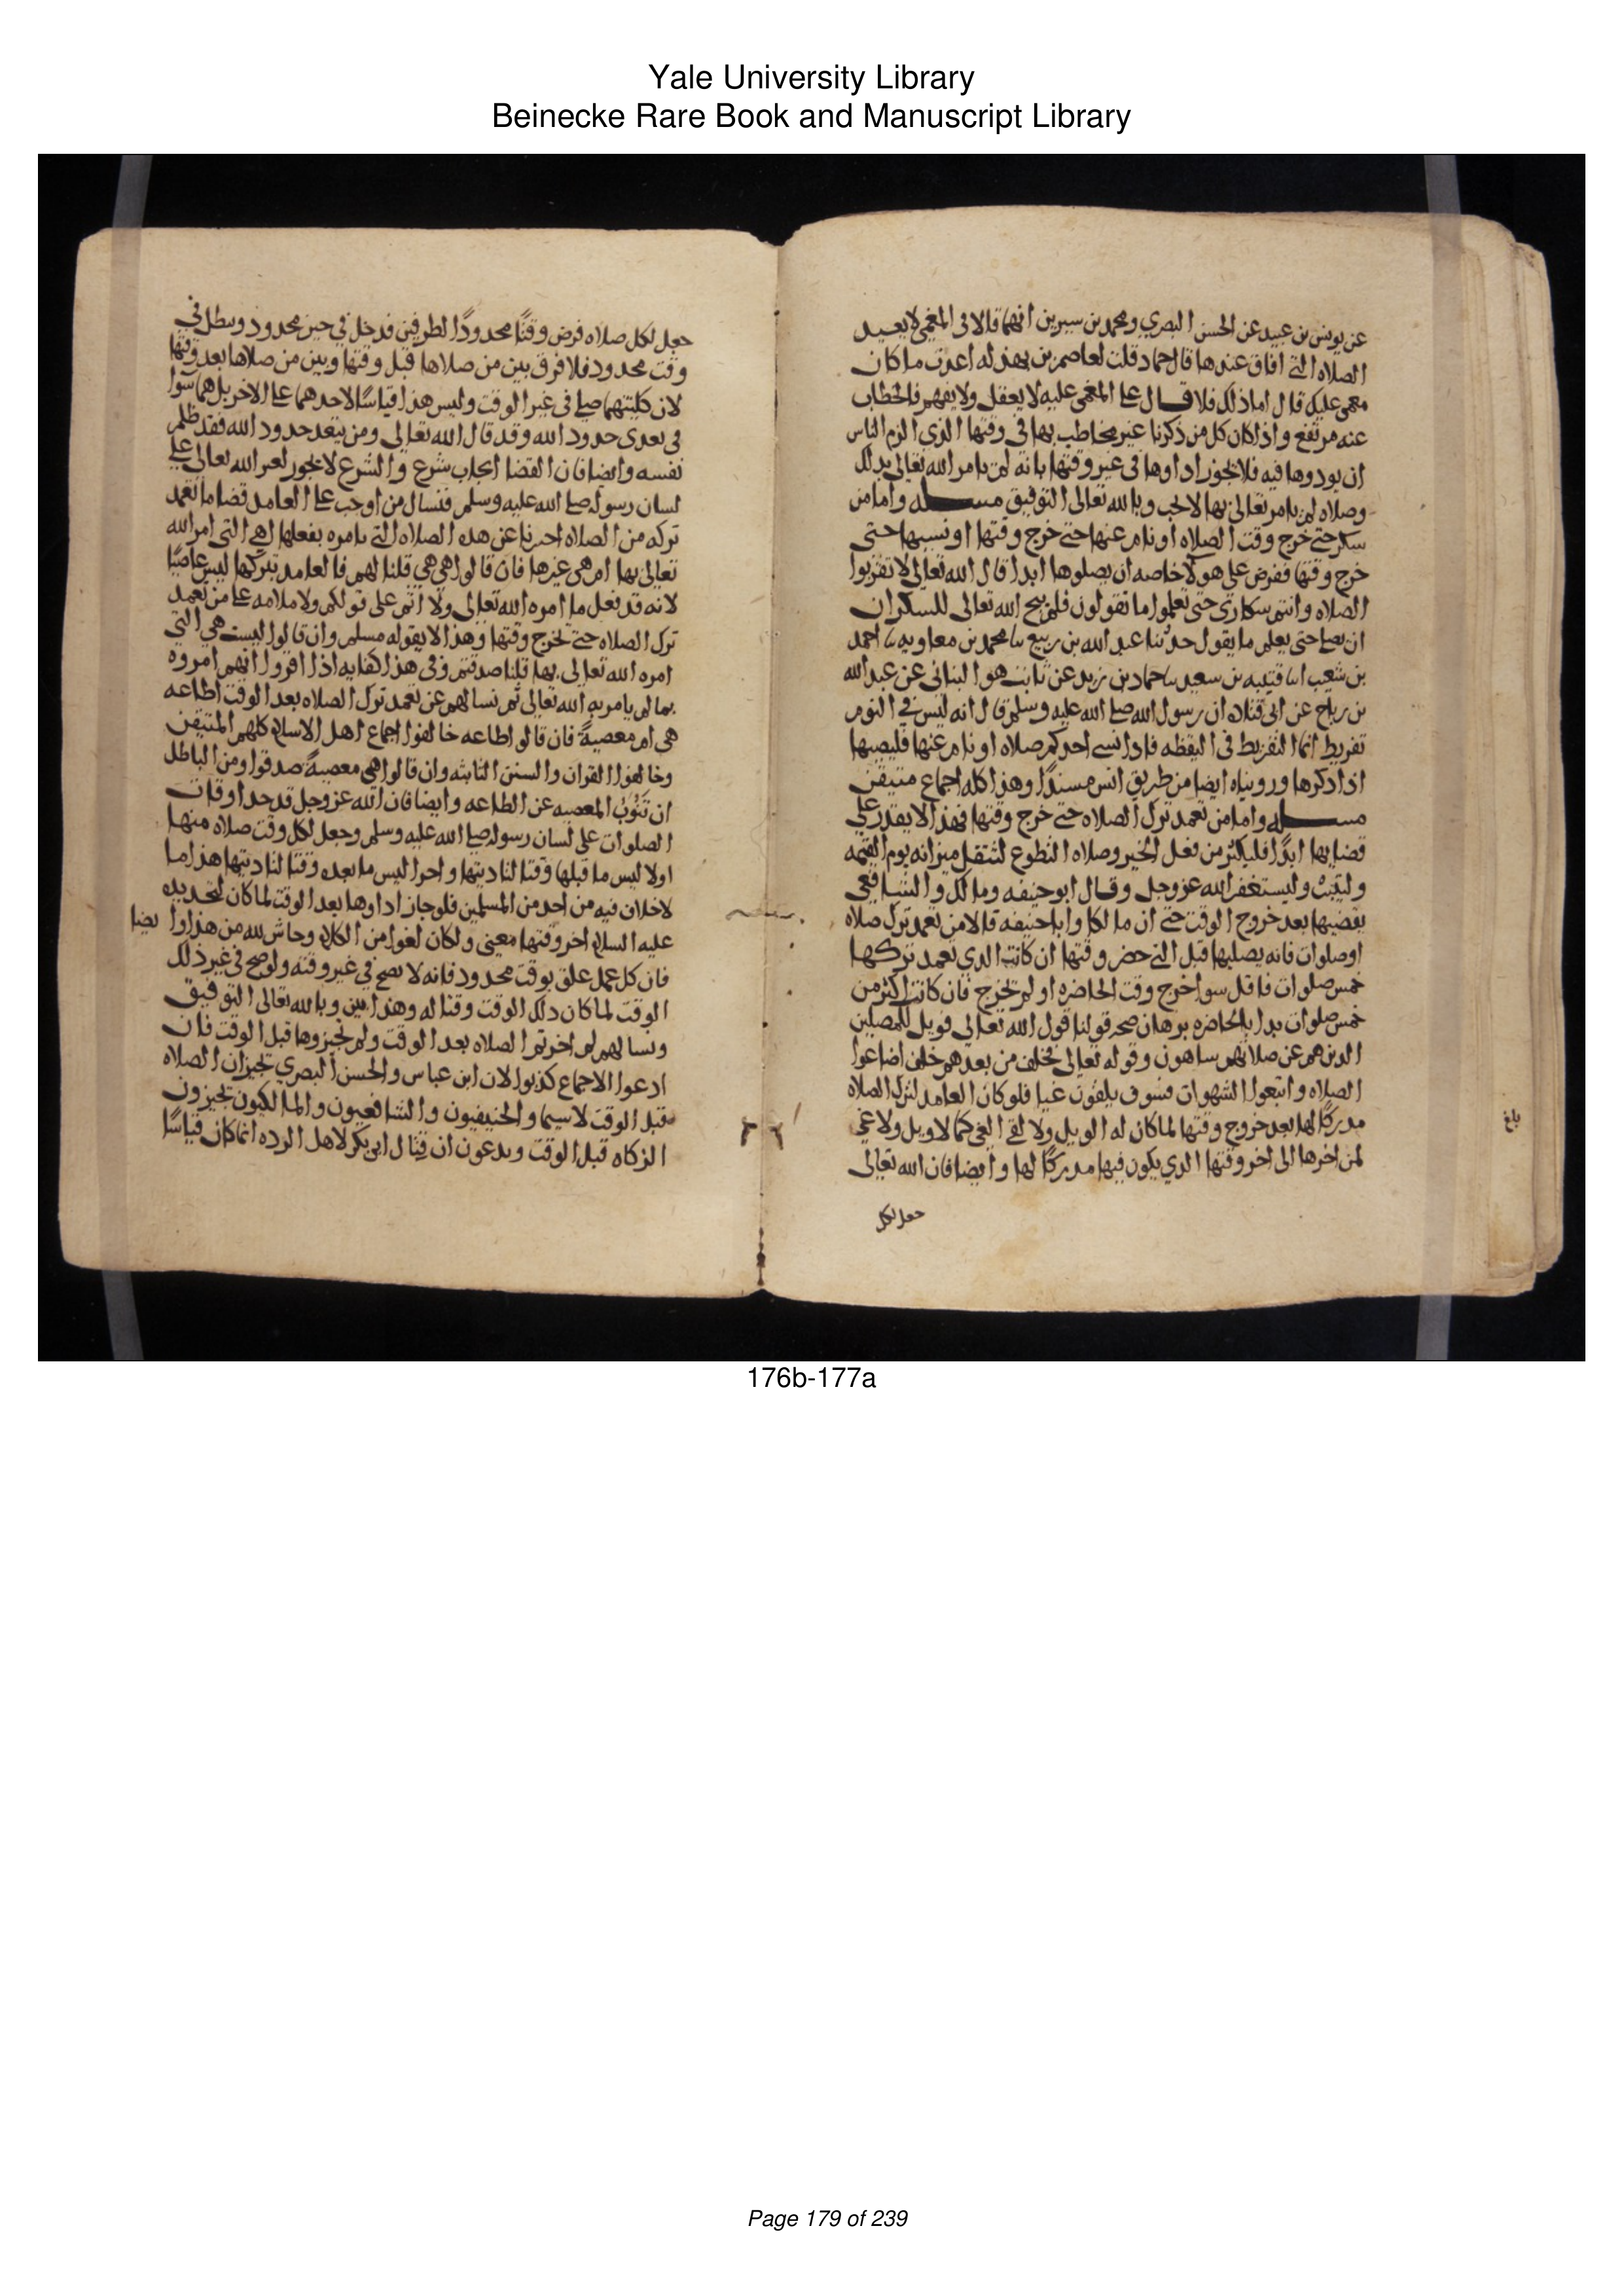 Yale University Library
Beinecke Rare Book and Manuscript Library
عن يونس بن عبيد عن الحسن البصري ومحمد بن سيرين انهما قالا في المغمى لا يعيد
الصلاه التي افاق عندها قال حماد قلت لعاصم بن بهدله اعدت ما كان
مغمى عليك قال اما ذلك فلا قال علي المغمى عليه لا يعقل ولا يفهم فالخطاب
عنه مرتفع واذا كان كل من ذكرنا غير مخاطب بها في وقتها الذي الزم الناس
ان يودوها فيه فلا يجوز اداوها في غير وقتها بانه لم يامر الله تعالى بذلك
وصلاه لم يامر تعالى بها لا تجب وبالله تعالى التوفيق مسله واما من
سكر حتى خرج وقت الصلاه او نام عنها حتى خرج وقتها او نسيها حتى
خرج وقتها ففرض على هولا خاصه ان يصلوها ابدا قال الله تعالى لا تقربوا
الصلاه وانتم سكارى حتى تعلموا ما تقولون فلم يبح الله تعالى للسكران
ان يصلي حتى يعلم ما يقول حدثنا عبد الله بن ربيع نا محمد بن معاويه نا احمد
بن شعيب انا قتيبه بن سعيد نا حماد بن زيد عن ثابت هو البناني عن عبد الله
بن رباح عن ابي قتاده ان رسول الله صلى الله عليه وسلم قال انه ليس في النوم
تفريط انما التفريط في اليقظه فاذا نسي احدكم صلاه او نام عنها فليصلها
اذا ذكرها ورويناه ايضا من طريق انس مسندا وهذا كله اجماع متيقن
مسله واما من تعمد ترك الصلاه حتى خرج وقتها فهذا لا يقدر على
قضايها ابدا فليكثر من فعل الخير وصلاه التطوع لتثقل ميزانه يوم القيمه
وليتب وليستغفر الله عز وجل وقال ابو حنيفه ومالك والشافعي
يقضيها بعد خروج الوقت حتى ان مالكا وابا حنيفه قالا من تعمد ترك صلاه
او صلوات فانه يصليها قبل التي حضر وقتها ان كانت الذي تعمد تركها
خمس صلوات فاقل سوا خرج وقت الحاضره او لم تخرج فان كانت اكثر من
خمس صلوات بدا بالحاضره برهان صحه قولنا قول الله تعالى فويل للمصلين
الذين هم عن صلاتهم ساهون وقوله تعالى فخلف من بعدهم خلف اضاعوا
الصلاه واتبعوا الشهوات فسوف يلقون غيا فلو كان العامد لترك الصلاه
مدركا لها بعد خروج وقتها لما كان له الويل ولا لقي الغي كما لا ويل ولا غي
لمن اخرها الى اخر وقتها الذي يكون فيها مدركا لها وايضا فان الله تعالى
جعل لكل
بلغ
جعل لكل صلاه فرض وقتا محدودا لطرفين فدخل في حين محدود وبطل في
وقت محدود فلا فرق بين من صلاها قبل وقتها وبين من صلاها بعد وقتها
لان كليتهما صلى في غير الوقت وليس هذا قياسا لاحدهما على الاخر بل هما سوا
في تعدي حدود الله وقد قال الله تعالى ومن يتعد حدود الله فقد ظلم
نفسه وايضا فان القضا ايجاب شرع والشرع لا يجوز لغير الله تعالى على
لسان رسوله صلى الله عليه وسلم فنسال من اوجب على العامد قضا ما تعمد
تركه من الصلاه اخبرنا عن هذه الصلاه التي تامره بفعلها اهي التي امر الله
تعالى بها ام هي غيرها فان قالوا هي هي قلنا لهم فالعامد بتركها ليس عاصيا
لانه قد فعل ما امره الله تعالى ولا اثم على قولكم ولا ملامه على من تعمد
ترك الصلاه حتى تخرج وقتها وهذا لا يقوله مسلم وان قالوا ليست هي التي
امره الله تعالى بها قلنا صدقتم وفي هذا كفايه اذا اقروا انهم امروه
بما لم يامر به الله تعالى ثم نسالهم عن تعمد ترك الصلاه بعد الوقت اطاعه
هي ام معصيه فان قالوا طاعه خالفوا اجماع اهل الاسلام كلهم المتيقن
وخالفوا القران والسنن الثابته وان قالوا هي معصيه صدقوا ومن الباطل
ان تنوب المعصيه عن الطاعه وايضا فان الله عز وجل قد حد اوقات
الصلوات على لسان رسوله صلى الله عليه وسلم وجعل لكل وقت صلاه منها
اولا ليس ما قبلها وقتا لتاديتها واخرا ليس ما بعده وقتا لتاديتها هذا ما
لا خلاف فيه من احد من المسلمين فلو جاز اداوها بعد الوقت لما كان لتحديده
عليه السلام اخر وقتها معنى ولكان لغوا من الكلام وحاش لله من هذا وا يضا
فان كل عمل علق بوقت محدود فانه لا يصح في غير وقته ولو صح في غير ذلك
الوقت لما كان ذلك الوقت وقتا له وهذا بين وبالله تعالى التوفيق
ونسالهم لم اخرتم الصلاه بعد الوقت ولم تجيزوها قبل الوقت فان
ادعوا الاجماع كذبوا لان ابن عباس والحسن البصري تجيزان الصلاه
قبل الوقت لا سيما والحنيفيون والشافعيون والمالكيون تجيزون
الزكاه قبل الوقت ويدعون ان قتال ابي بكر لاهل الرده انما كان قياسا
176b-177a
Page 179 of 239